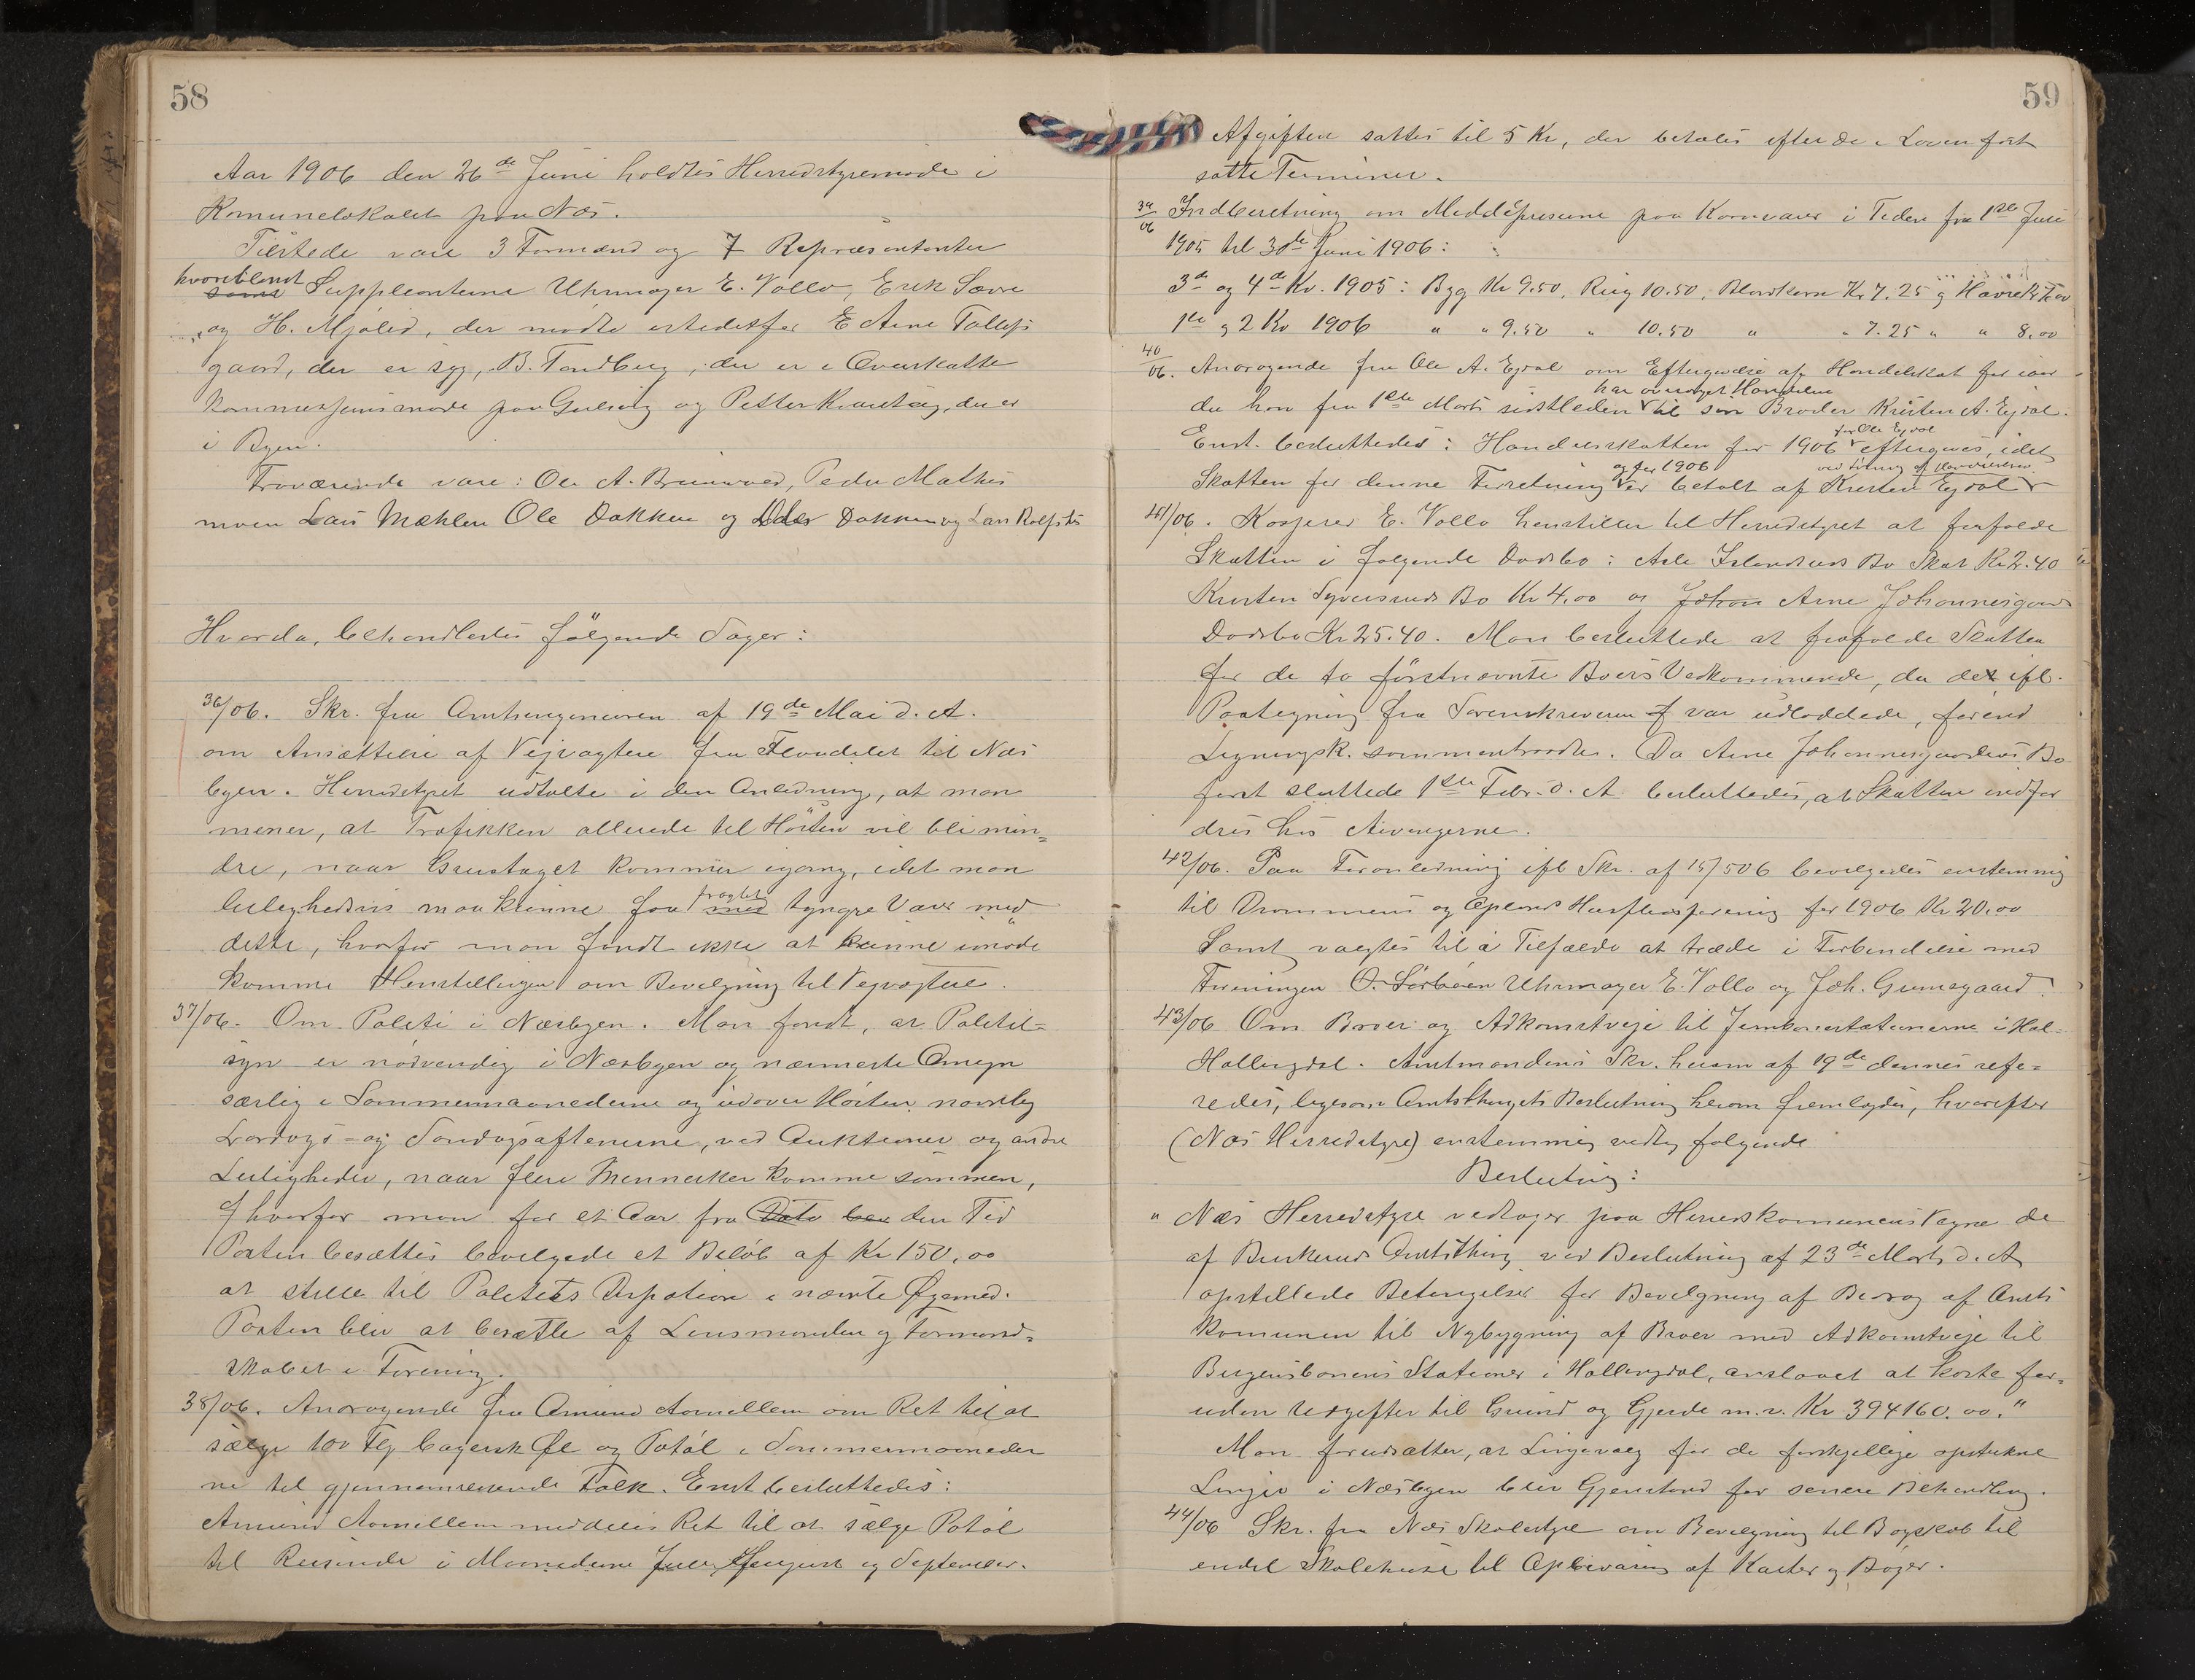 58
Aar 1906 den 26de Juni holdtes Herredstyremøde i
Komunelokalet paa Næs.
Tilstede vare 3 Formænd og 7 Repræsentanter
hvoriblandt Suppleanterne Uhrmager E. Vollo, Erik Sævre
og H. Mjølid, der mødte istedetfor E Arne Tollefs
gaard, der er syg, B. Tandberg, der er i Overskatte
kommissjonsmøde paa Gulsvig og Petter Kvarteig, der er
i Byen.
Fraværende vare: Ole A. Breiuvaed, Peder Mathis
moen Lars Mæhlen Ole Dokken og Dokken og Lars Rolfstad
Hvorda, behandledes følgende Sager:
36/06. Skr. fra Amtsingeniøren af 19de Mai d. A.
om Ansættelse af Vejvogtere fra Flaadelet til Næs
byen. Herredstyret udtalte i den Anledning, at man
mener, at Trafikken allerede til Høsten vil bli min-
dre, naar Grustaget kommer igang, idet man
leilighedsvis maa kunne faa fragtet med tyngre Varer med
dette, hvorfor man fandt ikke at kunne imøde
komme Henstillingen om Bevilgning til Vejvogtere.
37/06. Om Politi i Næsbyen. Man fandt, at Politil-
syn er nødvendig i Næsbyen og nærmeste Omegn
særlig i Sommermaanederne og udover Høsten navnlig
Lørdags- og Søndagsaftenerne, ved Auktioner og andre
Leiligheder, naar flere Mennesker komme sammen,
hvorfor man for et Aar fra Dato den Tid
Posten besættes bevilgede et Beløb af Kr 150,00
at stille til Politiets Disposition i nævnte Øiemed.
Posten blir at besætte af Lensmanden og Formand-
skabet i Forening.
38/06. Andragende fra Amund Aamellem om Ret til at
sælge 100 Fl. bayersk Øl og Potøl i Sommermaaneder
ne til gjennemreisende Folk. Enst. besluttedes:
Amund Aamellem meddeles Ret til at sælge Potøl
til Reisende i Maanederne Juli, August og September.
59
Afgiften sattes til 5 Kr, der betales efter de i Loven fast
satte Terminer.
39/06 Indberetning om Middelpriserne paa Kornvarer i Tiden fra 1ste Juli
1905 til 30te Juni 1906:
3de og 4de Kv. 1905: Byg Kr 9.50, Rug 10.50, Blandkorn Kr 7.25 og Havre Kr 8.00
1ste og 2 Kv 1906 " " 9.50 " 10.50 " " 7.25 " " 8.00
40/06. Andragende fra Ole A. Ejdal om Eftergivelse af Handelsskat for iaar
da han fra 1ste Marts sidstleden har overdraget Handelen til sin Broder Kristen A. Ejdal.
Enst. besluttedes: Handelsskatten for 1906 for Ole Ejdal eftergives, idet
Skatten for denne Forretning og for 1906 er betalt af Kristen Ejdal
41/06. Kasserer E. Vollo henstiller til Herredstyret at frafalde
Skatten i følgende Dødsbo: Asle Islandsruds Bo Skat Kr 2.40
Kristen Syversruds Bo Kr 4.00 og Johan Arne Johannesgaards
Dødsbo Kr 25.40. Man besluttede at frafalde Skatten
for de to førstnævnte Boers Vedkommende, da det ifl.
Paategning fra Sorenskriveren var udloddede, førend
Ligningsk. sammentraadte. Da Arne Johannesgaardens Bo
først sluttede 1ste Febr. d. A. besluttedes, at Skatten indfor
dres hos Arvingerne.
42/06. Paa Foranledning ifl Skr. af 15/5 06 bevilgedes enstemmig
til Drammens og Oplands Husflidsforening for 1906 Kr 20.00
Samt valgtes til i Tilfælde at træde i Forbindelse med
Foreningen O. Sørbøen Uhrmager E. Vollo og Joh. Grimsgaard.
43/06 Om Broer og Adkomstveje til Jernbanestationerne i Hal-
Hallingdal. Amtmandens Skr. herom af 19de dennes refe-
redes, ligesom Amtsthingets Beslutning herom fremlagdes, hvorefter
(Næs Herredstyre) enstemmig vedtog følgende
Beslutning:
" Næs Herredstyre vedtager paa Herredskomunens Vegne de
af Buskeruds Amtsthing ved Beslutning af 23de Marts d. A.
opstillede Betingelser for Bevilgning af Bidrag af Amts
komunen til Nybygning af Broer med Adkomstveje til
Bergensbanens Stationer i Hallingdal, anslaaet at koste for-
uden Udgifter til Grund og Gjerde m. v. Kr 394160.00."
Man forudsætter, at Linjevalg for de forskjellige opstukne
Linjer i Næsbyen blir Gjenstand for senere Behandling.
44/06 Skr. fra Næs Skolestyre om Bevilgning til Bogskab til
endel Skolehuse til Opbevaring af Karter og Bøger.